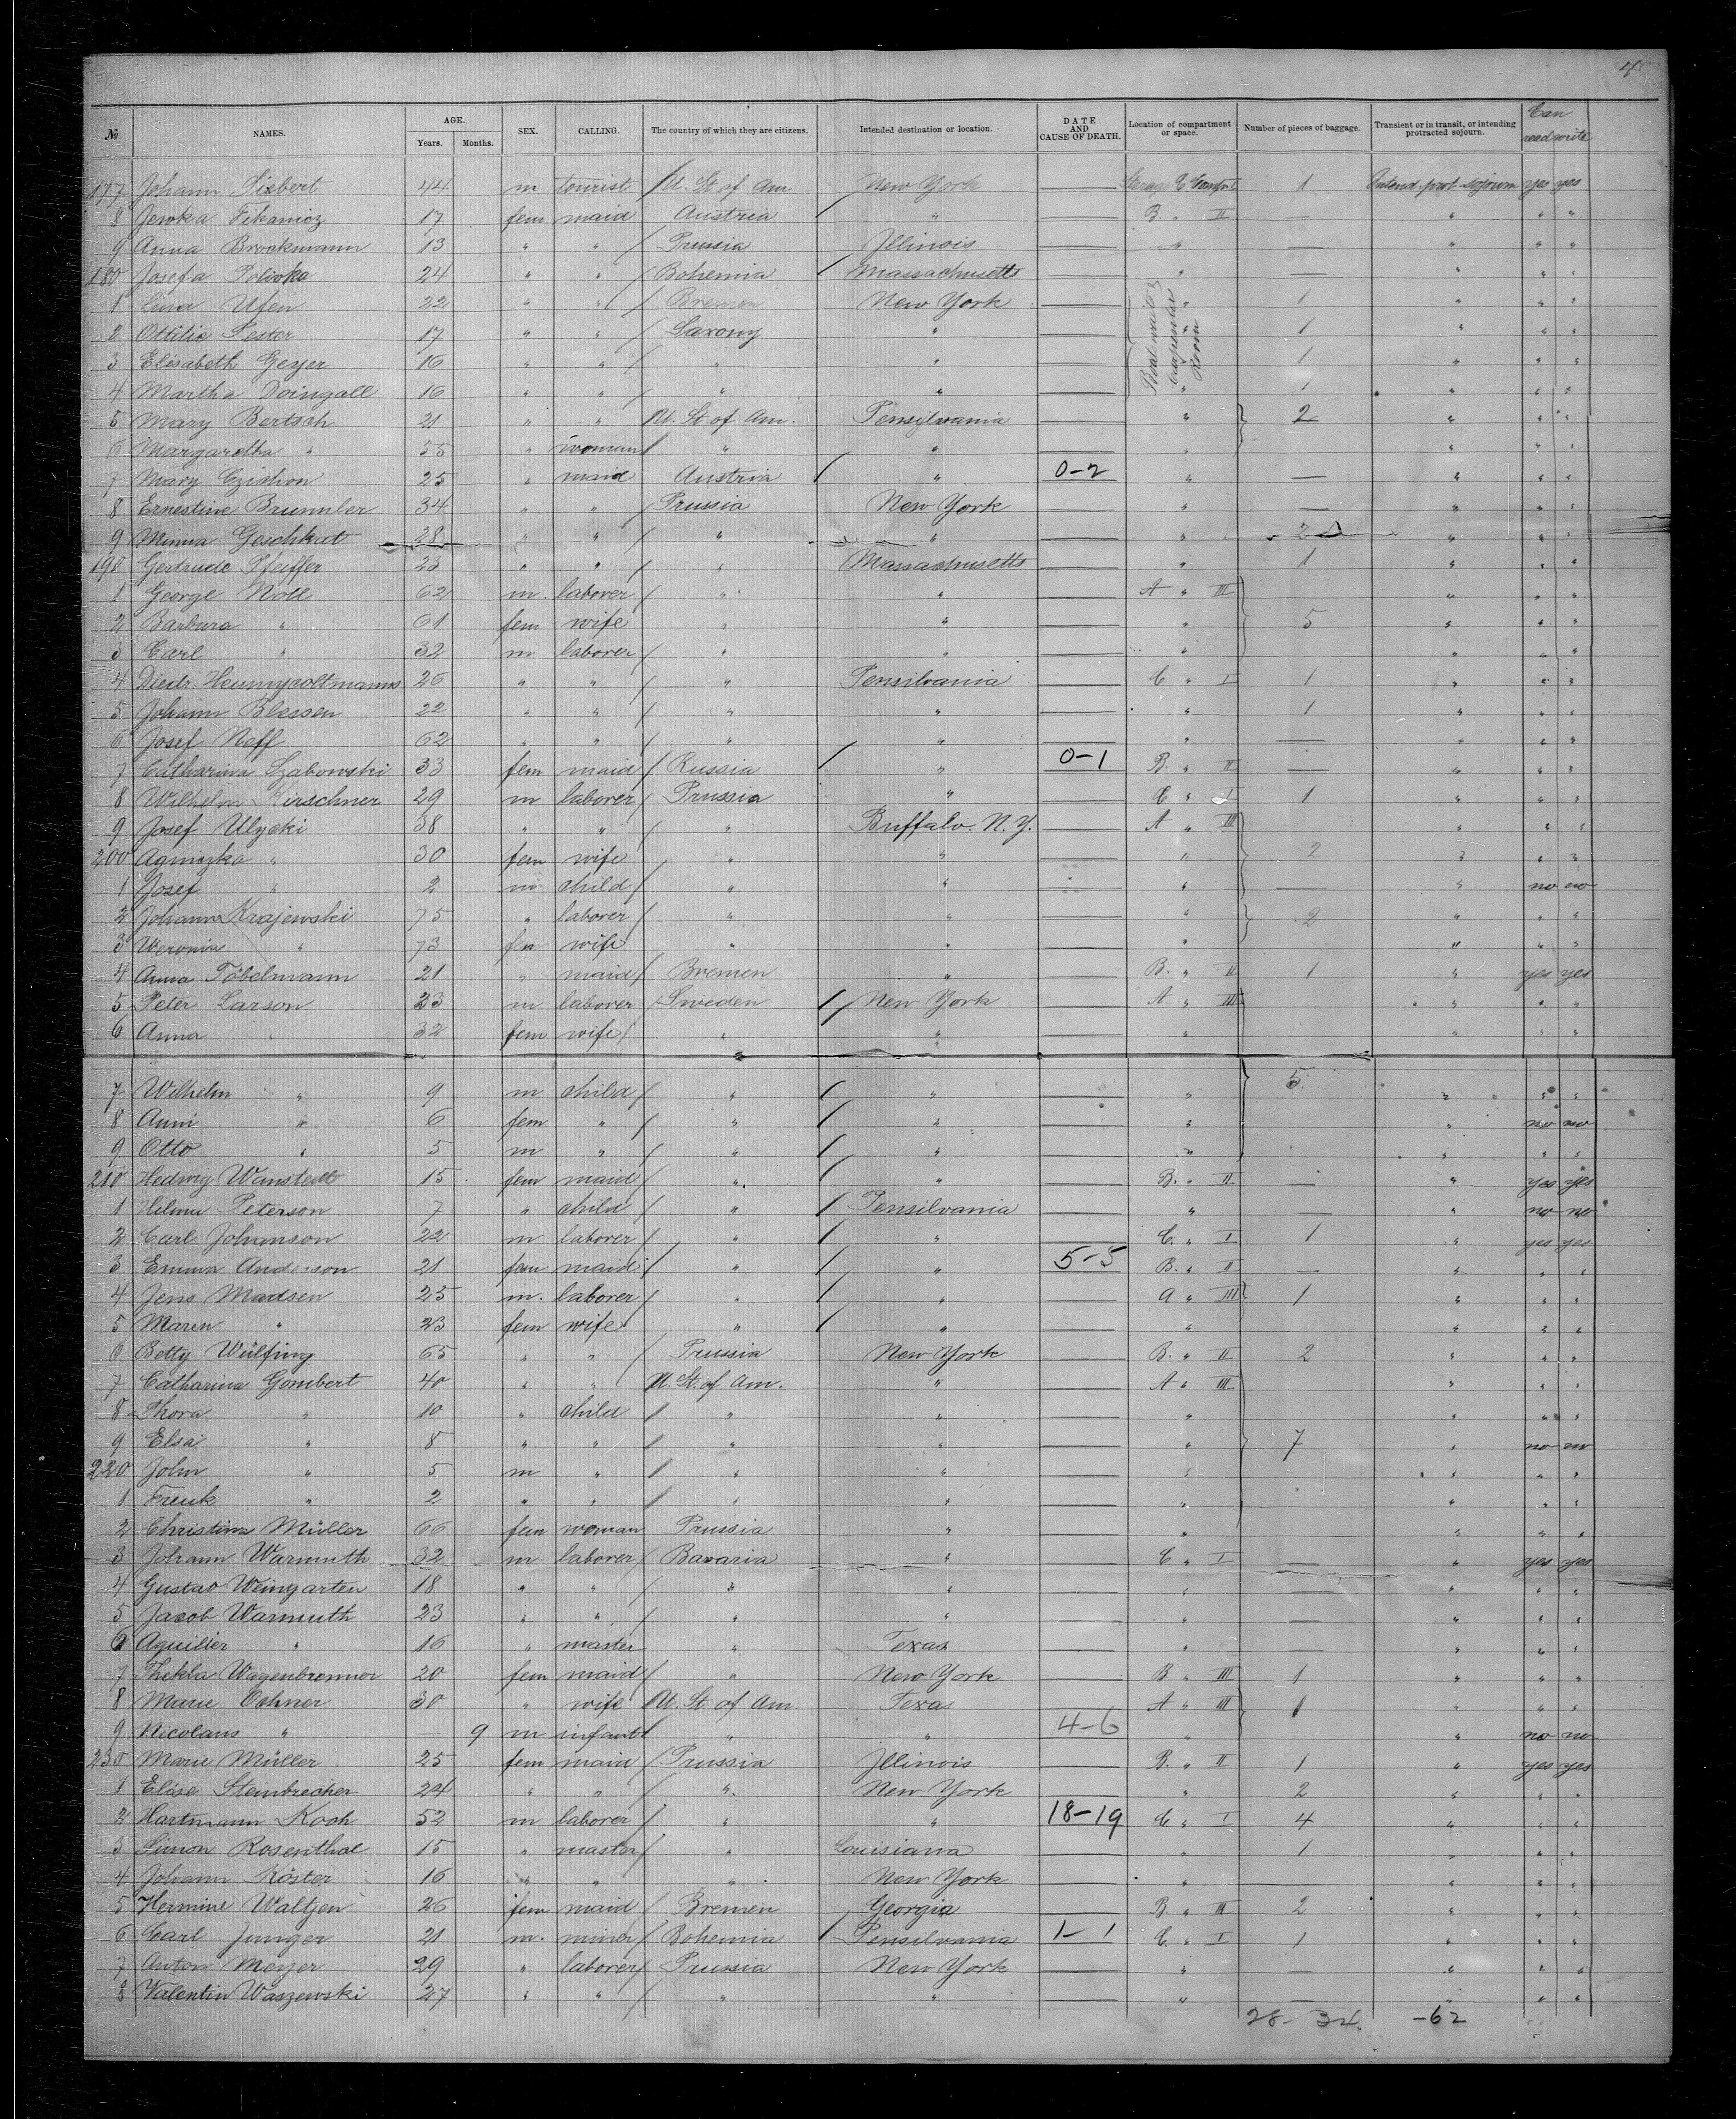 4
№ NAMES. AGE. Years. Months. SEX. CALLING. The country of which they are citizens. Intended destination or location. DATE AND CAUSE OF DEATH. Location of compartment or space. Number of pieces of baggage. Transient or in transit, or intending protracted sojourn. Can read write
177 Johann Siebert 44 m tourist U. St of Am New York 1 Intend. prot. sojourn yes yes
8 17 fem maid Austria " — B. " II — " " "
9 Anna Brockmann 13 " " Prussia Illinois — " — " " "
180 Josefa Polivka 24 " " Bohemia Massachusetts — " — " " "
1 Ufen 22 " " Bremen New York — " 1 " " "
2 Ottilie Pester 17 " " Saxony " — " 1 " " "
3 Elisabeth Geyer 16 " " " " — " 1 " " "
4 Martha 16 " " " " — " 1 " " "
5 Mary Bertsch 21 " " U. St of Am. Pensylvania — " 2 " " "
6 Margaretha " 55 " woman " " — " " " "
7 Mary 25 " maid Austria " 0-2 " — " " "
8 Ernestine Brunnler 34 " " Prussia New York — " — " " "
9 Minna Geschkat 28 " " " " — " 2 " " "
190 Gertrude Pfeiffer 23 " " " Massachusetts — " 1 " " "
1 George Noll 62 m. laborer " " — A " III " " "
2 Barbara " 61 fem wife " " — " 5 " " "
3 Carl " 32 m laborer " " — " " " "
4 Diedr. 26 " " " Pensilvania — C " I 1 " " "
5 Johann Blessen 22 " " " " — " 1 " " "
6 Josef Neff 62 " " " " — " — " " "
7 Catharina Szabowski 33 fem maid Russia " 0-1 B. " II — " " "
8 Wilhelm Kirschner 29 m laborer Prussia " — C " I 1 " " "
9 Josef Ulycki 38 " " " Buffalo. N. Y. — A " III " " "
200 Agniszka " 30 fem wife " " — " 2 " " "
1 Josef " 2 m child " " — " — " no no
2 Johann Krajewski 75 " laborer " " — " 2 " " "
3 Weronia " 73 fem wife " " — " " " "
4 Anna Töbelmann 21 " maid Bremen " — B. " II 1 " yes yes
5 Peter Larson 23 m laborer Sweden New York — A " III " " "
6 Anna " 32 fem wife " " — " " " "
7 Wilhelm " 9 m child " " — " 5 " " "
8 Anni " 6 fem " " " — " " no no
9 Otto " 5 m " " " — " " " "
210 Hedwig Wanstedt 15 fem maid " " — B. " II — " yes yes
1 Hilma Peterson 7 " child " Pensilvania — " — " no no
2 Carl Johanson 22 m laborer " " — C. " I 1 " yes yes
3 Emma Anderson 21 fem maid " " 5-5 B. " II — " " "
4 Jens Madsen 25 m. laborer " " — A " III 1 " " "
5 Maren " 23 fem wife " " — " " " "
6 Betty Wülfing 65 " " Prussia New York — B. " II 2 " " "
7 Catharina Gombert 40 " " U. St. of Am. " — A " III " " "
8 Thora " 10 " child " " — " " " "
9 Elsa " 8 " " " " — " 7 " no no
220 John " 5 m " " " — " " " "
1 Freuk " 2 " " " " — " " " "
2 Christina Müller 66 fem woman Prussia " — " " " "
3 Johann Warmuth 32 m laborer Bavaria " — C " I — " yes yes
4 Gustav Weingarten 18 " " " " — " — " " "
5 Jacob Warmuth 23 " " " " — " — " " "
6 Aquilier " 16 " master " Texas — " — " " "
7 Thekla Wagenbrenner 20 fem maid " New York — B " III 1 " " "
8 Marie Ochner 30 " wife U. St of Am. Texas — A " III 1 " " "
9 Nicolaus " — 9 m infant " " 4-6 " " no no
230 Marie Müller 25 fem maid Prussia Illinois — B. " II 1 " yes yes
1 Elise Steinbrecher 24 " " " New York — " 2 " " "
2 Hartmann Koch 52 m laborer " " 18-19 C " I 4 " " "
3 Simon Rosenthal 15 " master " Louisiana — " 1 " " "
4 Johann Köster 16 " " " New York — " — " " "
5 Hermine Waltjen 26 fem maid Bremen Georgia — B. " III 2 " " "
6 Carl Junger 21 m. miner Bohemia Pensilvania 1-1 C. " I 1 " " "
7 Anton Meyer 29 " laborer Prussia New York — " — " " "
8 Valentin Waszewski 27 " " " " — " — " " "
28- 34. -62